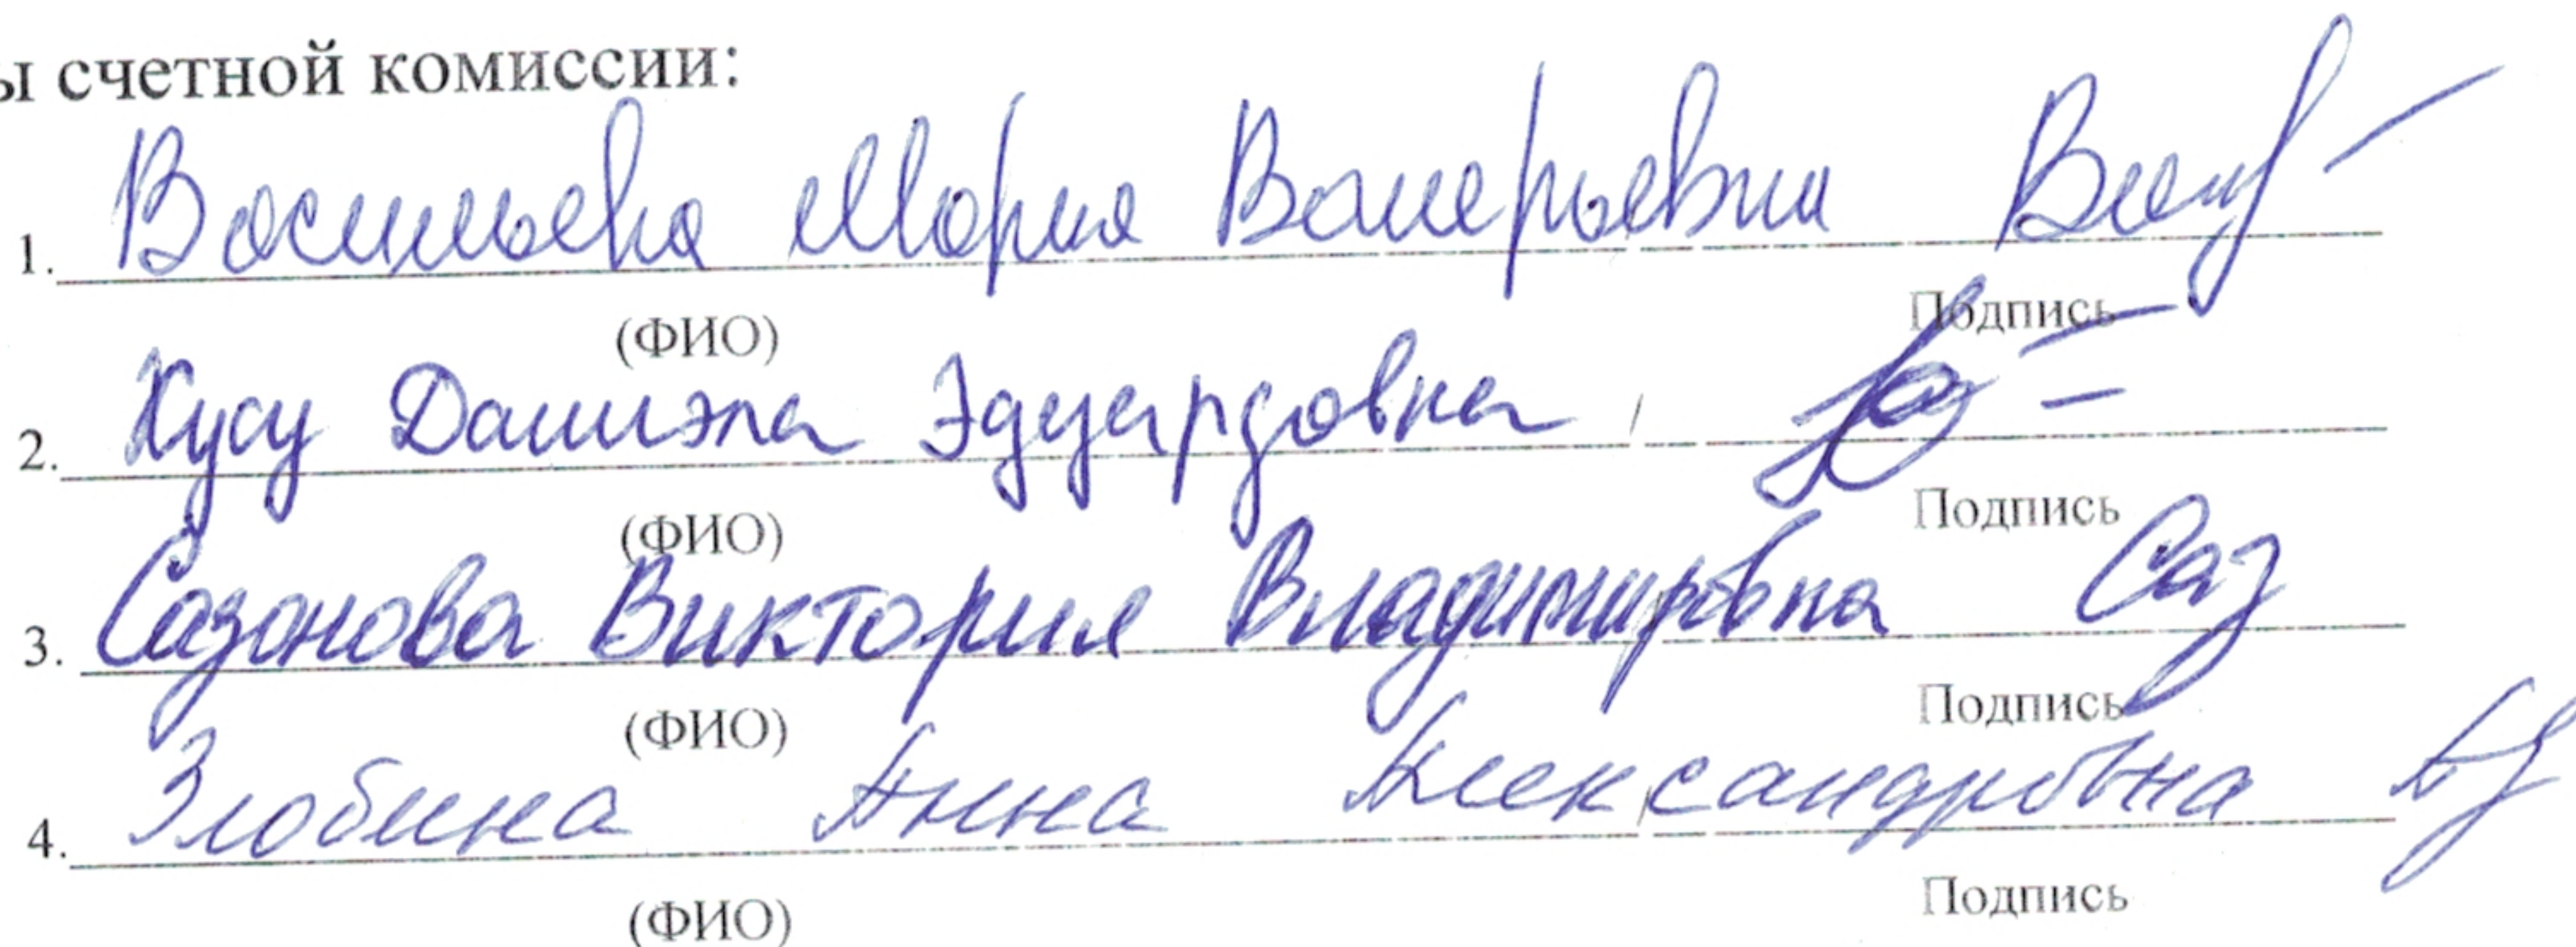 ы счетной комиссии:
1. Васильева Мария Валерьевна
(ФИО) Подпись
2. Хусу Даниэла Эдуардовна
(ФИО) Подпись
3. Сазонова Виктория Владимировна Саз
(ФИО) Подпись
4. Злобина Анна Александровна
(ФИО) Подпись